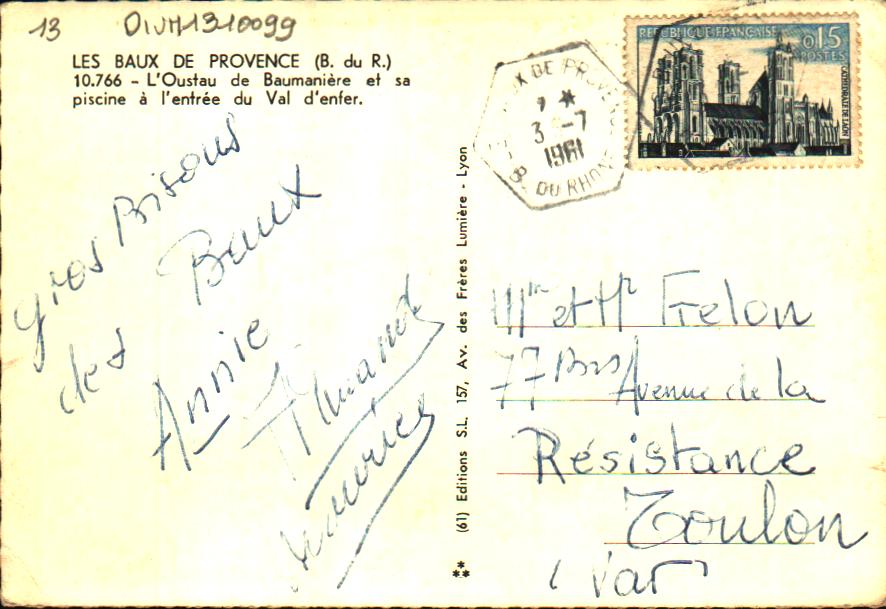 13 DIVM1310099
LES BAUX DE PROVENCE (B. du R.)
10.766 - L'Oustau de Baumanière et sa
piscine à l'entrée du Val d'enfer.
REPUBLIQUE FRANÇAISE
0,15
POSTES
CATHEDRALE DE LAON
3 -7
1961
B. DU RHONE
gros Bisous
des Baux
Annie
Armand
Maurice
(61) Editions S.L. 157, Av. des Frères Lumière - Lyon
Mme et Mr Frelon
77 Bis Avenue de la
Résistance
Toulon
(Var)